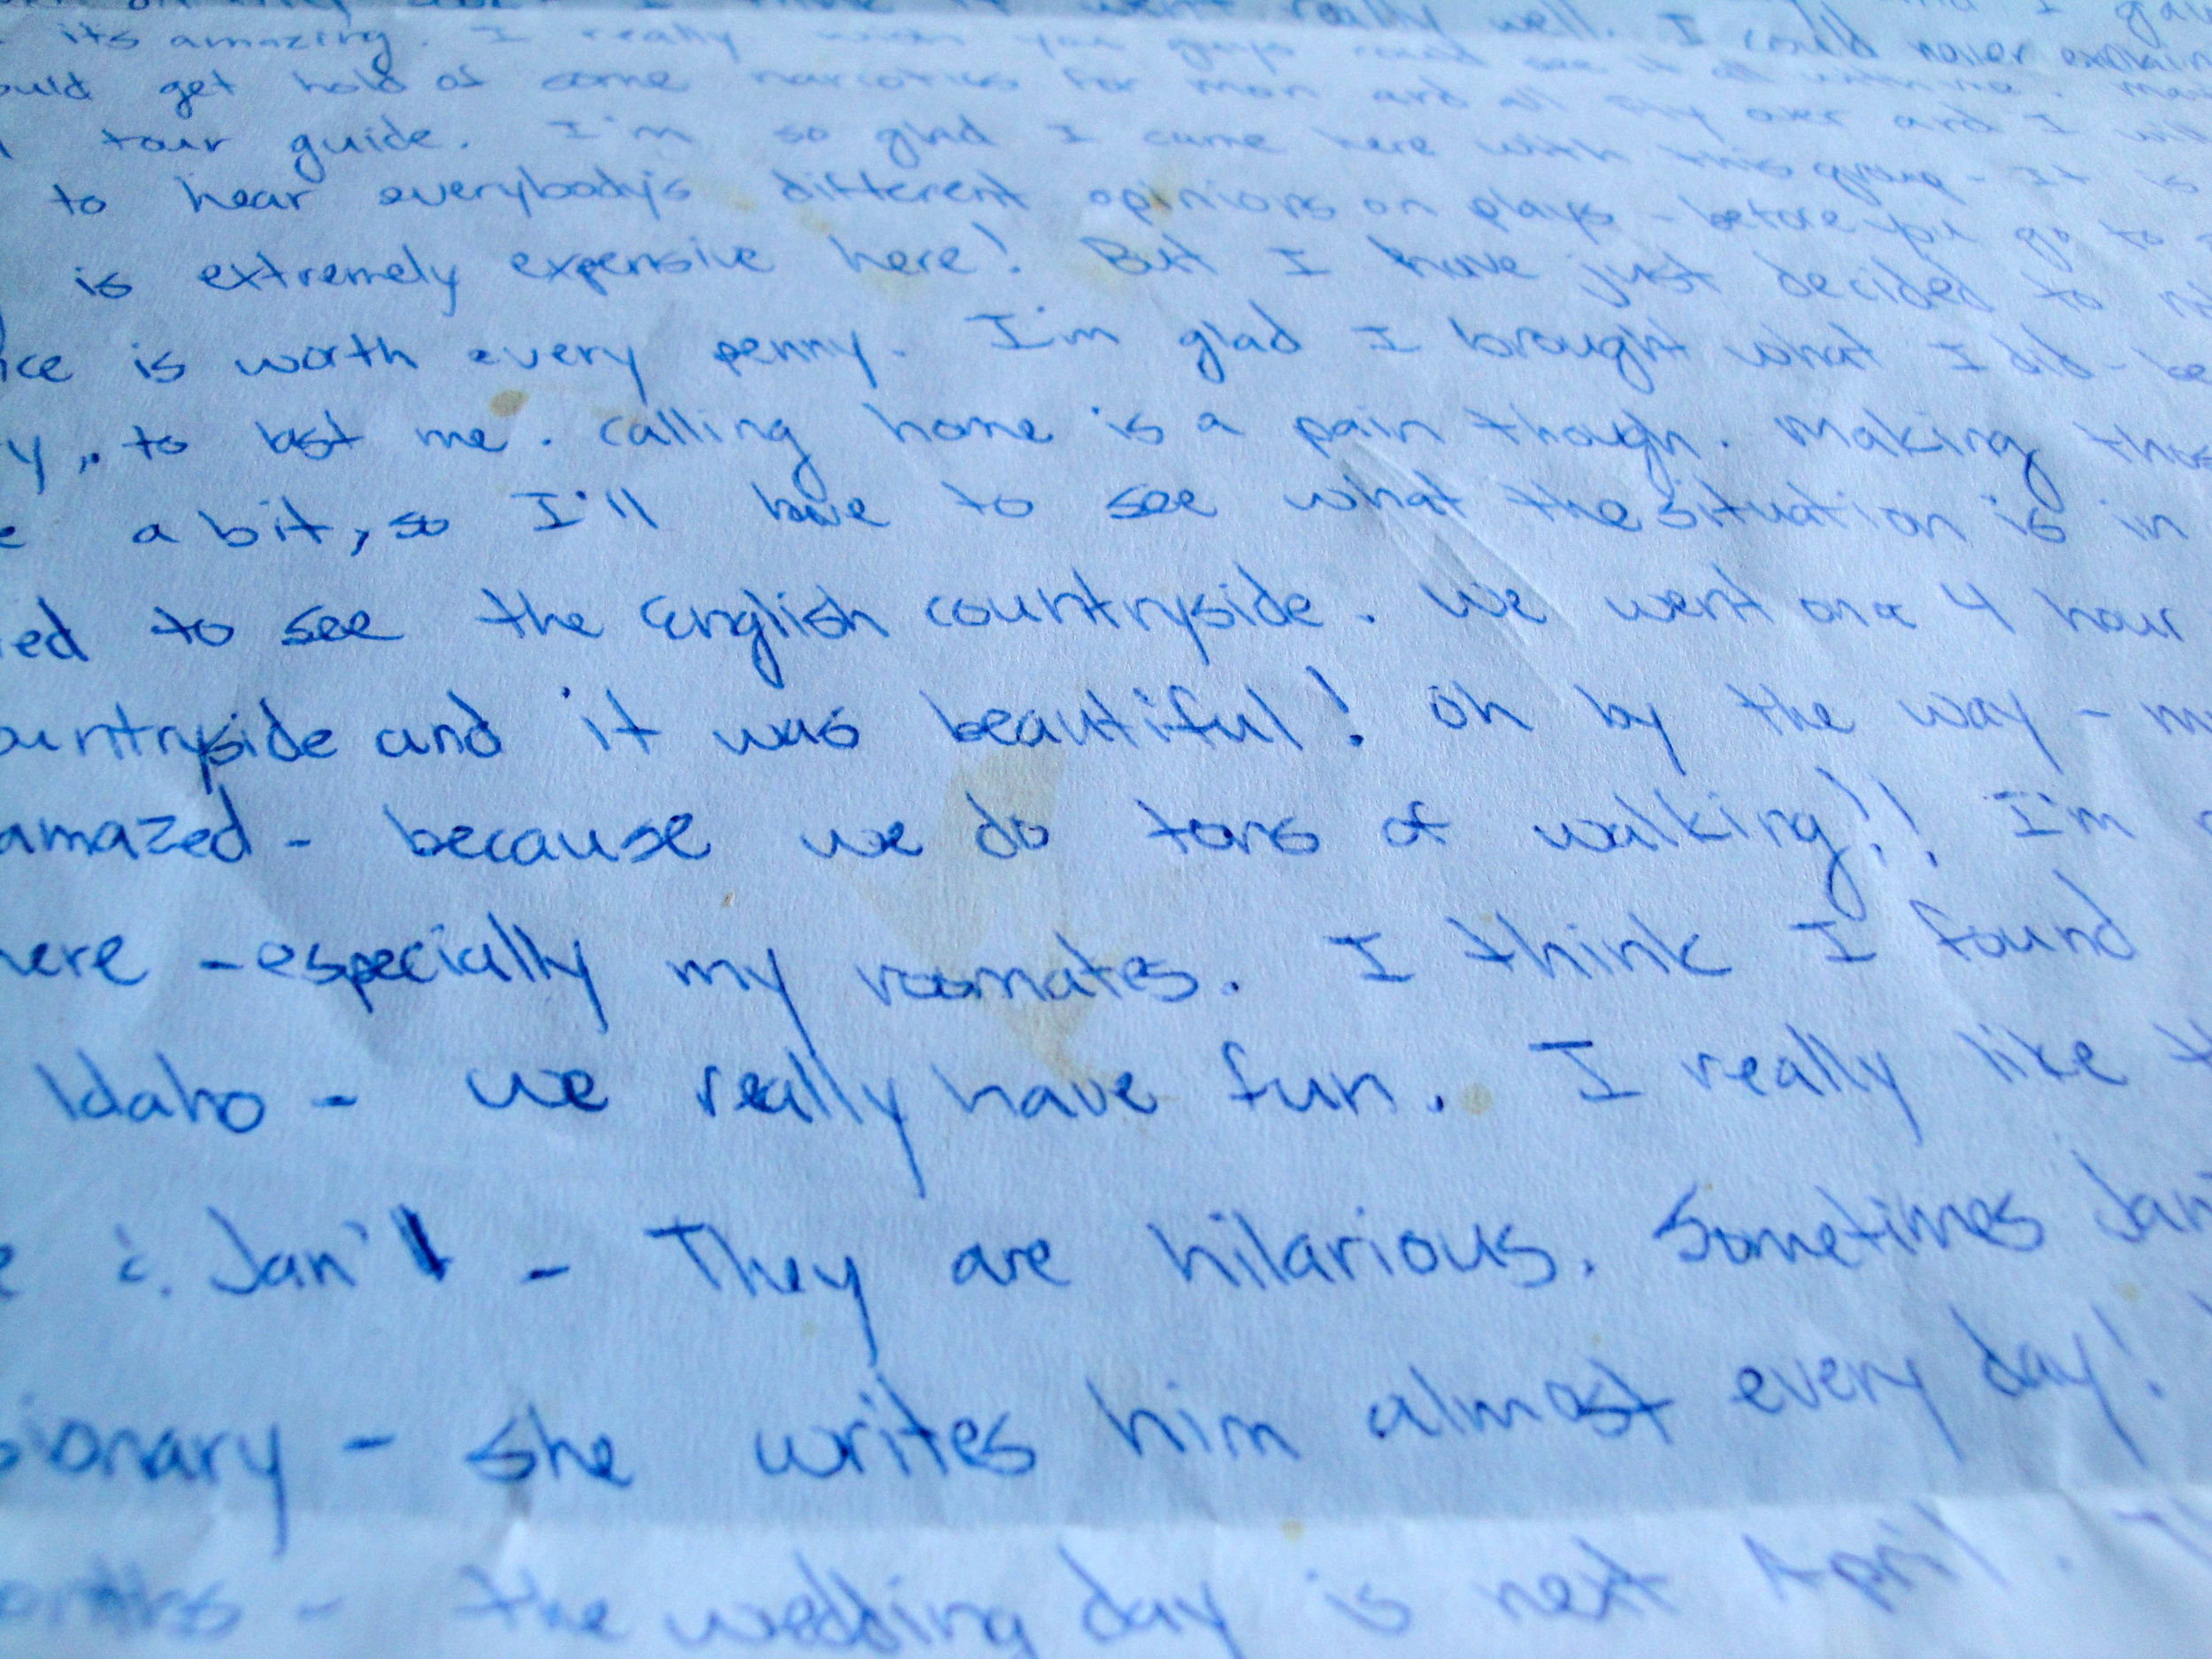 really well. I could never explain
its amazing. I really wish you guys could see it all with me.
ould get hold of some narcotics for mom and all fly over and I will
tour guide. I'm so glad I came here with this group - It is
to hear everybody's different opinions on plays - before you go to
is extremely expensive here! But I have just decided to
ice is worth every penny. I'm glad I brought what I did - be
y, to last me. Calling home is a pain though. Making thos
e a bit, so I'll have to see what the situation is in
ed to see the English countryside. We went on a 4 hour
ountryside and it was beautiful! Oh by the way - m
amazed - because we do tons of walking!! I'm
here - especially my roomates. I think I found
Idaho - we really have fun. I really like t
e & Jan' - They are hilarious. Sometimes Jan
sionary - she writes him almost every day!
onths - the wedding day is next April.